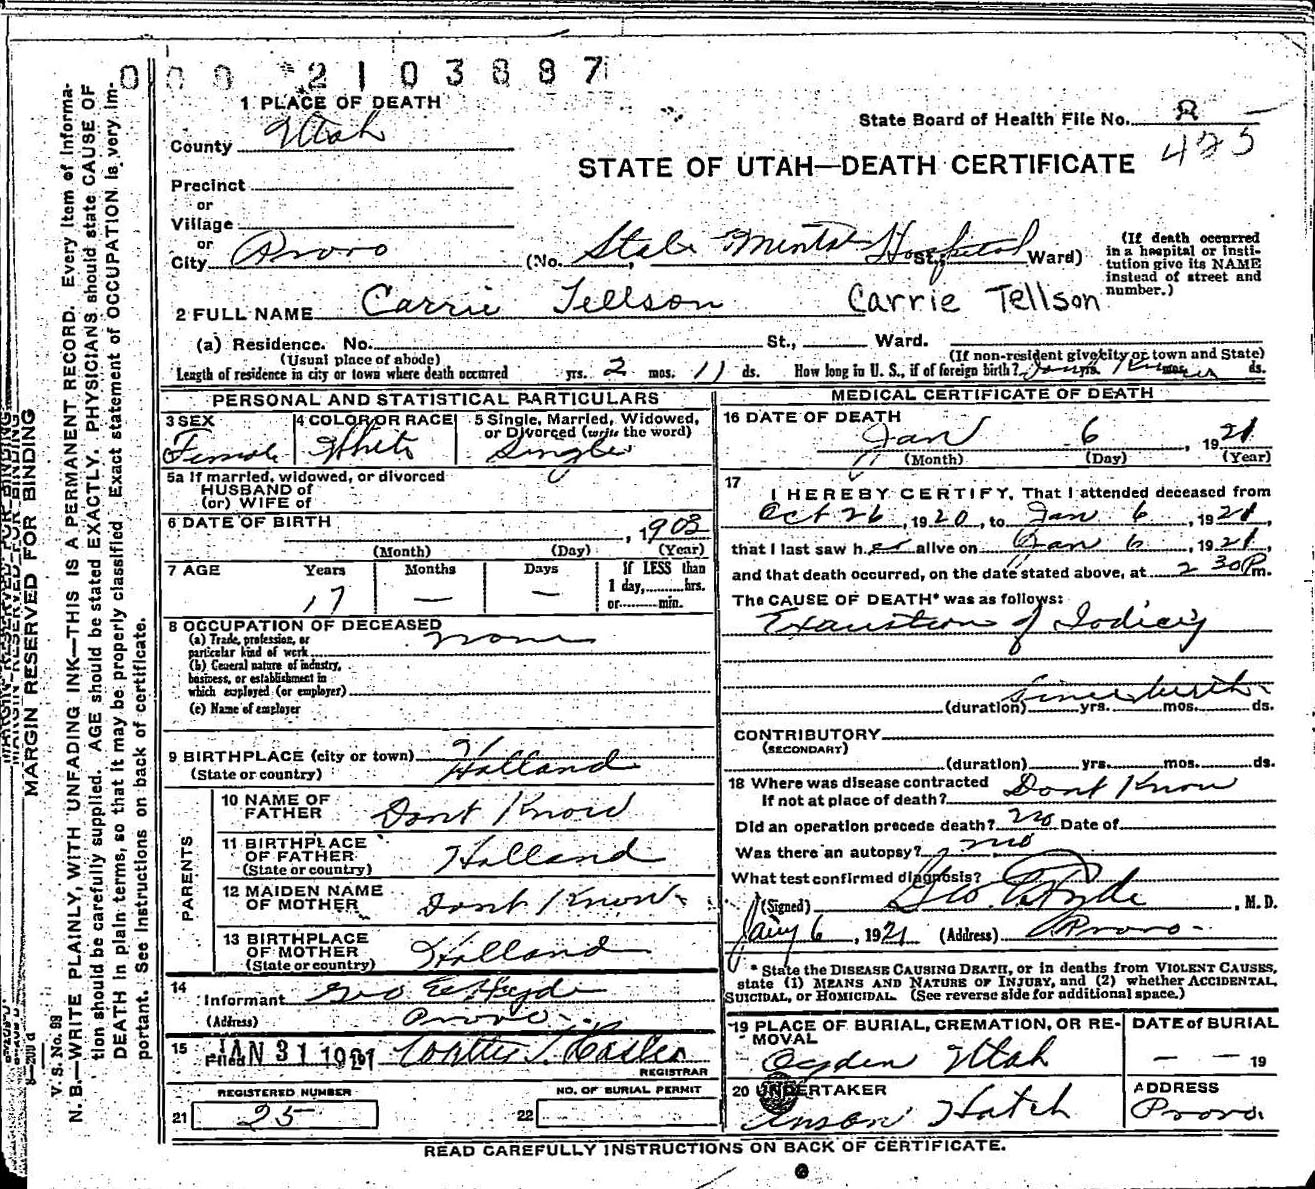 000 2103887
1 PLACE OF DEATH
County Utah
State Board of Health File No. 8
425
STATE OF UTAH—DEATH CERTIFICATE
Precinct
or
Village
or
City Provo (No. State Mental Hospital St., Ward)
(If death occurred in a hospital or institution give its NAME instead of street and number.)
2 FULL NAME Carrie Tellson Carrie Tellson
(a) Residence. No. St., Ward.
(Usual place of abode) (If non-resident give city or town and State)
Length of residence in city or town where death occurred yrs. 2 mos. 11 ds. How long in U. S., if of foreign birth? Dont Know yrs. mos. ds.
PERSONAL AND STATISTICAL PARTICULARS
3 SEX 4 COLOR OR RACE 5 Single, Married, Widowed, or Divorced (write the word)
Female White Single
5a If married, widowed, or divorced
HUSBAND of
(or) WIFE of
6 DATE OF BIRTH , 1903
(Month) (Day) (Year)
7 AGE Years Months Days If LESS than
1 day, hrs.
or min.
17 — —
8 OCCUPATION OF DECEASED
(a) Trade, profession, or
particular kind of work None
(b) General nature of industry,
business, or establishment in
which employed (or employer)
(c) Name of employer
9 BIRTHPLACE (city or town) Holland
(State or country)
PARENTS
10 NAME OF
FATHER Dont Know
11 BIRTHPLACE
OF FATHER Holland
(State or country)
12 MAIDEN NAME
OF MOTHER Dont Know
13 BIRTHPLACE
OF MOTHER Holland
(State or country)
14
Informant Geo E Hyde
(Address) Provo
15 Filed JAN 31 1921
REGISTRAR
REGISTERED NUMBER NO. OF BURIAL PERMIT
21 25 22
MEDICAL CERTIFICATE OF DEATH
16 DATE OF DEATH
Jan 6, 1921
(Month) (Day) (Year)
17
I HEREBY CERTIFY, That I attended deceased from
Oct 26, 1920, to Jan 6, 1921,
that I last saw her alive on Jan 6, 1921,
and that death occurred, on the date stated above, at 2 30 P m.
The CAUSE OF DEATH* was as follows:
Exaustion of Idiocy
since birth
(duration) yrs. mos. ds.
CONTRIBUTORY
(SECONDARY)
(duration) yrs. mos. ds.
18 Where was disease contracted
If not at place of death? Dont Know
Did an operation precede death? no Date of
Was there an autopsy? no
What test confirmed diagnosis?
(Signed) Geo E Hyde, M. D.
Jany 6, 1921 (Address) Provo
* State the DISEASE CAUSING DEATH, or in deaths from VIOLENT CAUSES,
state (1) MEANS AND NATURE OF INJURY, and (2) whether ACCIDENTAL,
SUICIDAL, or HOMICIDAL. (See reverse side for additional space.)
19 PLACE OF BURIAL, CREMATION, OR RE-
MOVAL
Ogden Utah
DATE of BURIAL
— — 19
20 UNDERTAKER
Anson Hatch
ADDRESS
Provo
READ CAREFULLY INSTRUCTIONS ON BACK OF CERTIFICATE.
MARGIN RESERVED FOR BINDING
V. S. No. 99
N. B.—WRITE PLAINLY, WITH UNFADING INK—THIS IS A PERMANENT RECORD. Every item of informa-
tion should be carefully supplied. AGE should be stated EXACTLY. PHYSICIANS should state CAUSE OF
DEATH in plain terms, so that it may be properly classified. Exact statement of OCCUPATION is very im-
portant. See instructions on back of certificate.